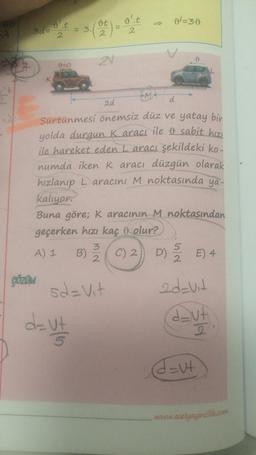 3.d = ϑ'.t/2 = 3.(ϑt/2) = ϑ'.t/2 ⇒ ϑ'=3ϑ
2V
V
ϑ=0
ϑ
K
L
M
2d
d
Sürtünmesi önemsiz düz ve yatay bir
yolda durgun K aracı ile ϑ sabit hızı
ile hareket eden L aracı şekildeki ko-
numda iken K aracı düzgün olarak
hızlanıp L aracını M noktasında ya-
kalıyor.
Buna göre; K aracının M noktasından
geçerken hızı kaç ϑ olur?
A) 1 B) 3/2 C) 2 D) 5/2 E) 4
ÇÖZÜM
5d=V.t
2d=V.t
d=Vt/5
d=Vt/2
d=Vt